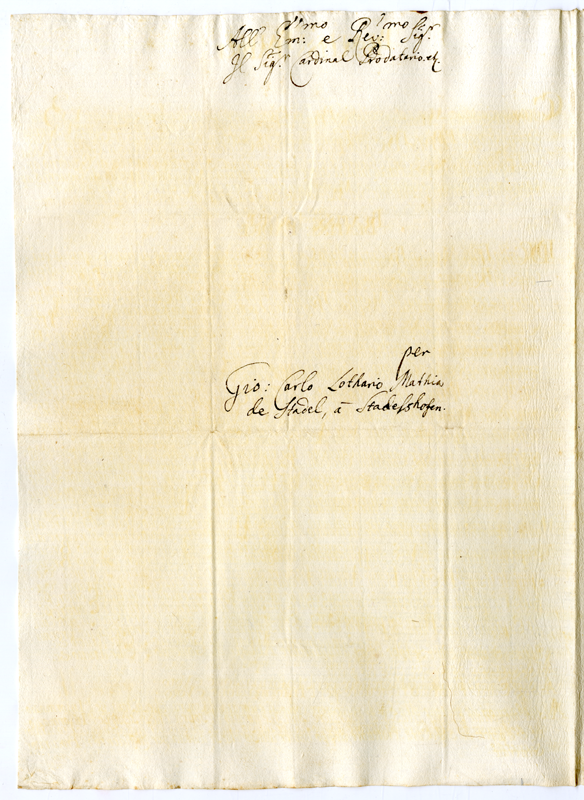 All' Em:mo e Rev:mo Sig.r
Il Sig.r Cardinal Prodatario. etc.
per
Gio: Carlo Lothario Mathia
de Stadel, â Stadelshofen.